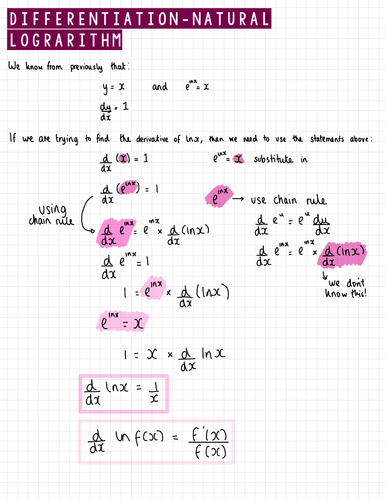 DIFFERENTIATION-NATURAL
LOGRARITHM
We know from previously that:
y = x and e^lnx = x
dy/dx = 1
If we are trying to find the derivative of lnx, then we need to use the statements above:
d/dx (x) = 1 e^lnx = x substitute in
d/dx (e^lnx) = 1
e^lnx → use chain rule
using
chain rule
d/dx e^lnx = e^lnx × d/dx (lnx)
d/dx e^u = e^u du/dx
d/dx e^lnx = 1
d/dx e^lnx = e^lnx × d/dx (lnx)
we don't
know this!
1 = e^lnx × d/dx (lnx)
e^lnx = x
1 = x × d/dx lnx
d/dx lnx = 1/x
d/dx ln f(x) = f'(x)/f(x)